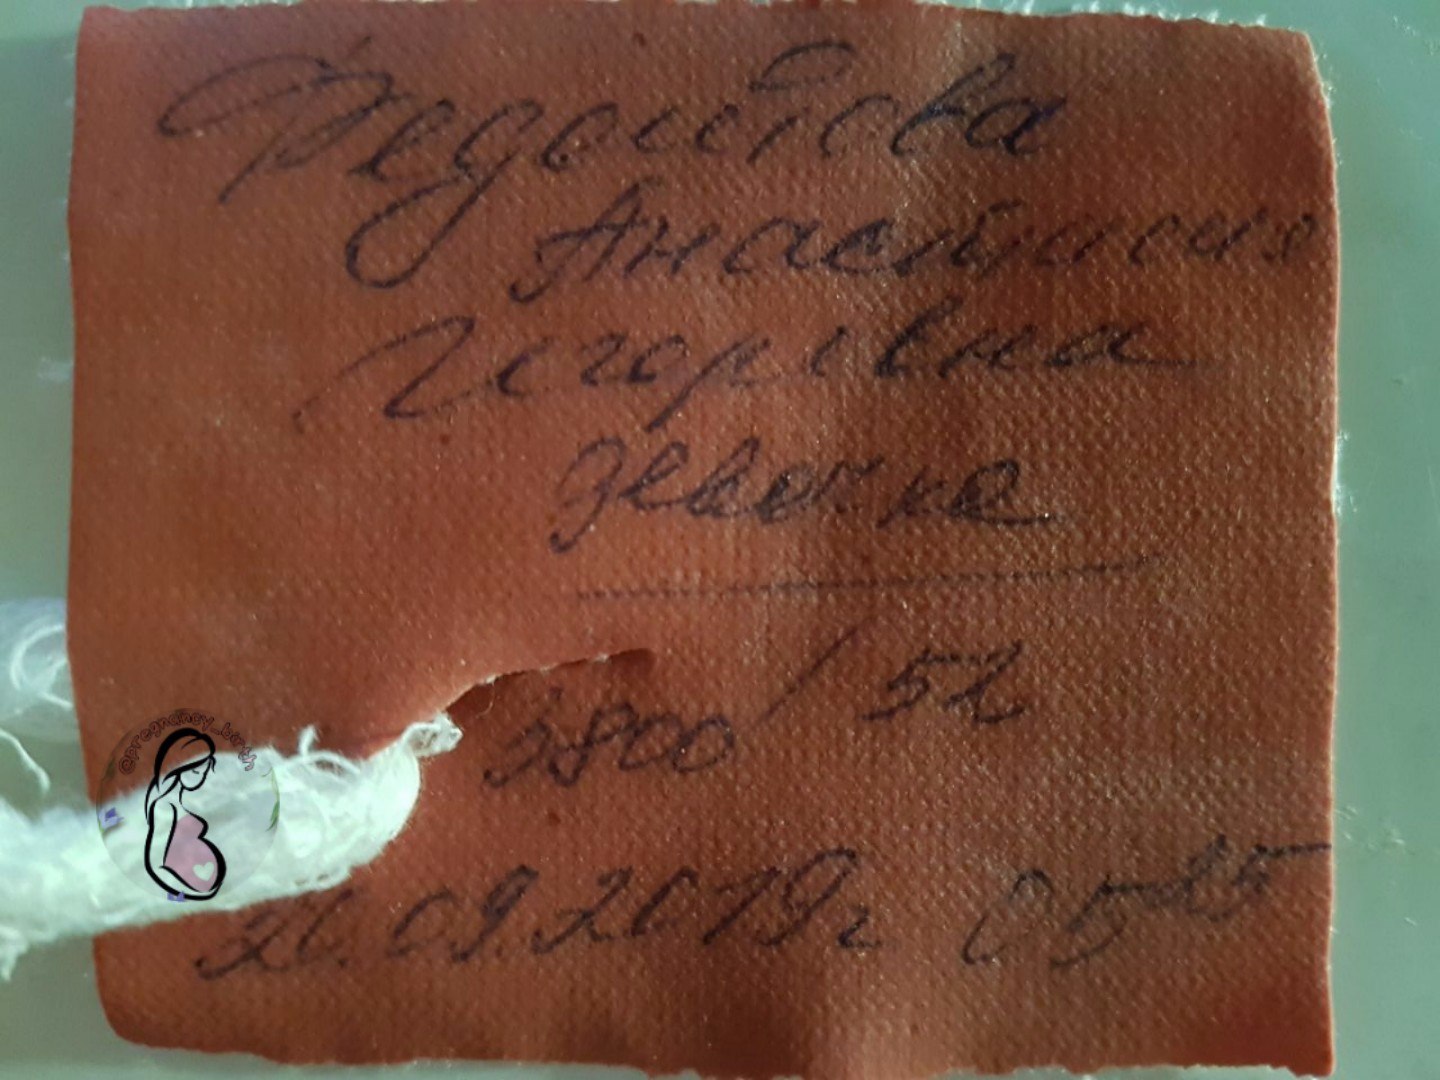 Федотова
Анастасия
Игоревна
девочка
3800 / 52
26.09.2019г 05 25
@pregnancy_birth